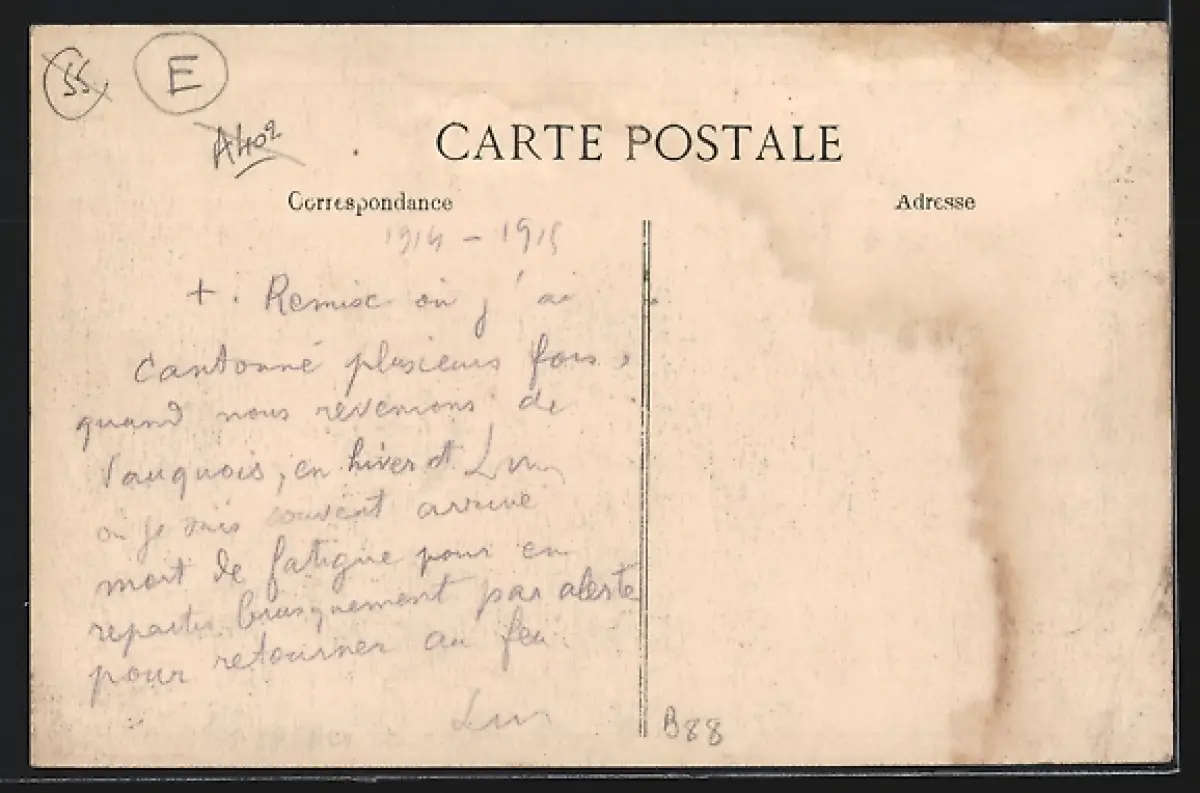 55
E
A402
CARTE POSTALE
Correspondance
Adresse
1914 - 1915
+ . Remise où j'ai
cantonné plusieurs fois,
quand nous revenions de
Vauquois, en hiver et
où je suis souvent arrivé
mort de fatigue pour en
repartir brusquement par alerte
pour retourner au feu.
B88